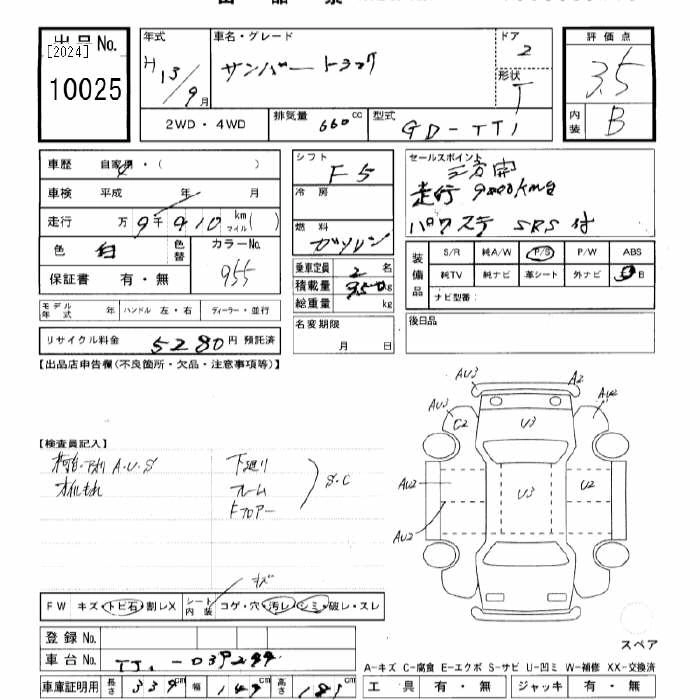 出品No.
[2024]
10025
年式
H13/9月
車名・グレード
サンバートラック
ドア
2
形状
T
評価点
3.5
内装
B
2WD・4WD
排気量 660cc
型式 GD-TT1
車歴 自家用・( )
車検 平成 年 月
走行 万9千910km マイル( )
色 白 色替
カラーNo.
955
保証書 有・無
モデル年式 年 ハンドル 左・右 ディーラー・並行
リサイクル料金 5280円 預託済
シフト F5
冷房
燃料 ガソリン
乗車定員 2名
積載量 350kg
総重量 kg
名変期限
月 日
セールスポイント
三方開
走行 9000km台
パワステ SRS付
装備品
S/R 純A/W P/S P/W ABS
純TV 純ナビ 革シート 外ナビ SB
ナビ型番:
後日品
【出品店申告欄(不良箇所・欠品・注意事項等)】
【検査員記入】
荷台・アオリ A.U.S
オイルもれ
下廻り
フレーム
Fフロアー
S.C
AU3
A2
AU3
C2
U3
AU2
AU2
U3
U2
AU2
キズ
FW キズ・トビ石・割レX
シート内装 コゲ・穴・汚レ・シミ・破レ・スレ
登録No.
車台No. TT1-039299
車庫証明用 長さ 339cm 幅 149cm 高さ 181cm
スペア
A-キズ C-腐食 E-エクボ S-サビ U-凹ミ W-補修 XX-交換済
工具 有・無 ジャッキ 有・無